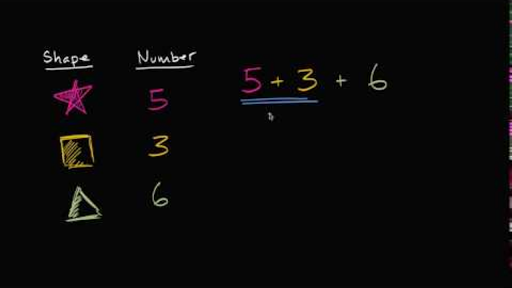 Shape Number
5 5 + 3 + 6
3
6